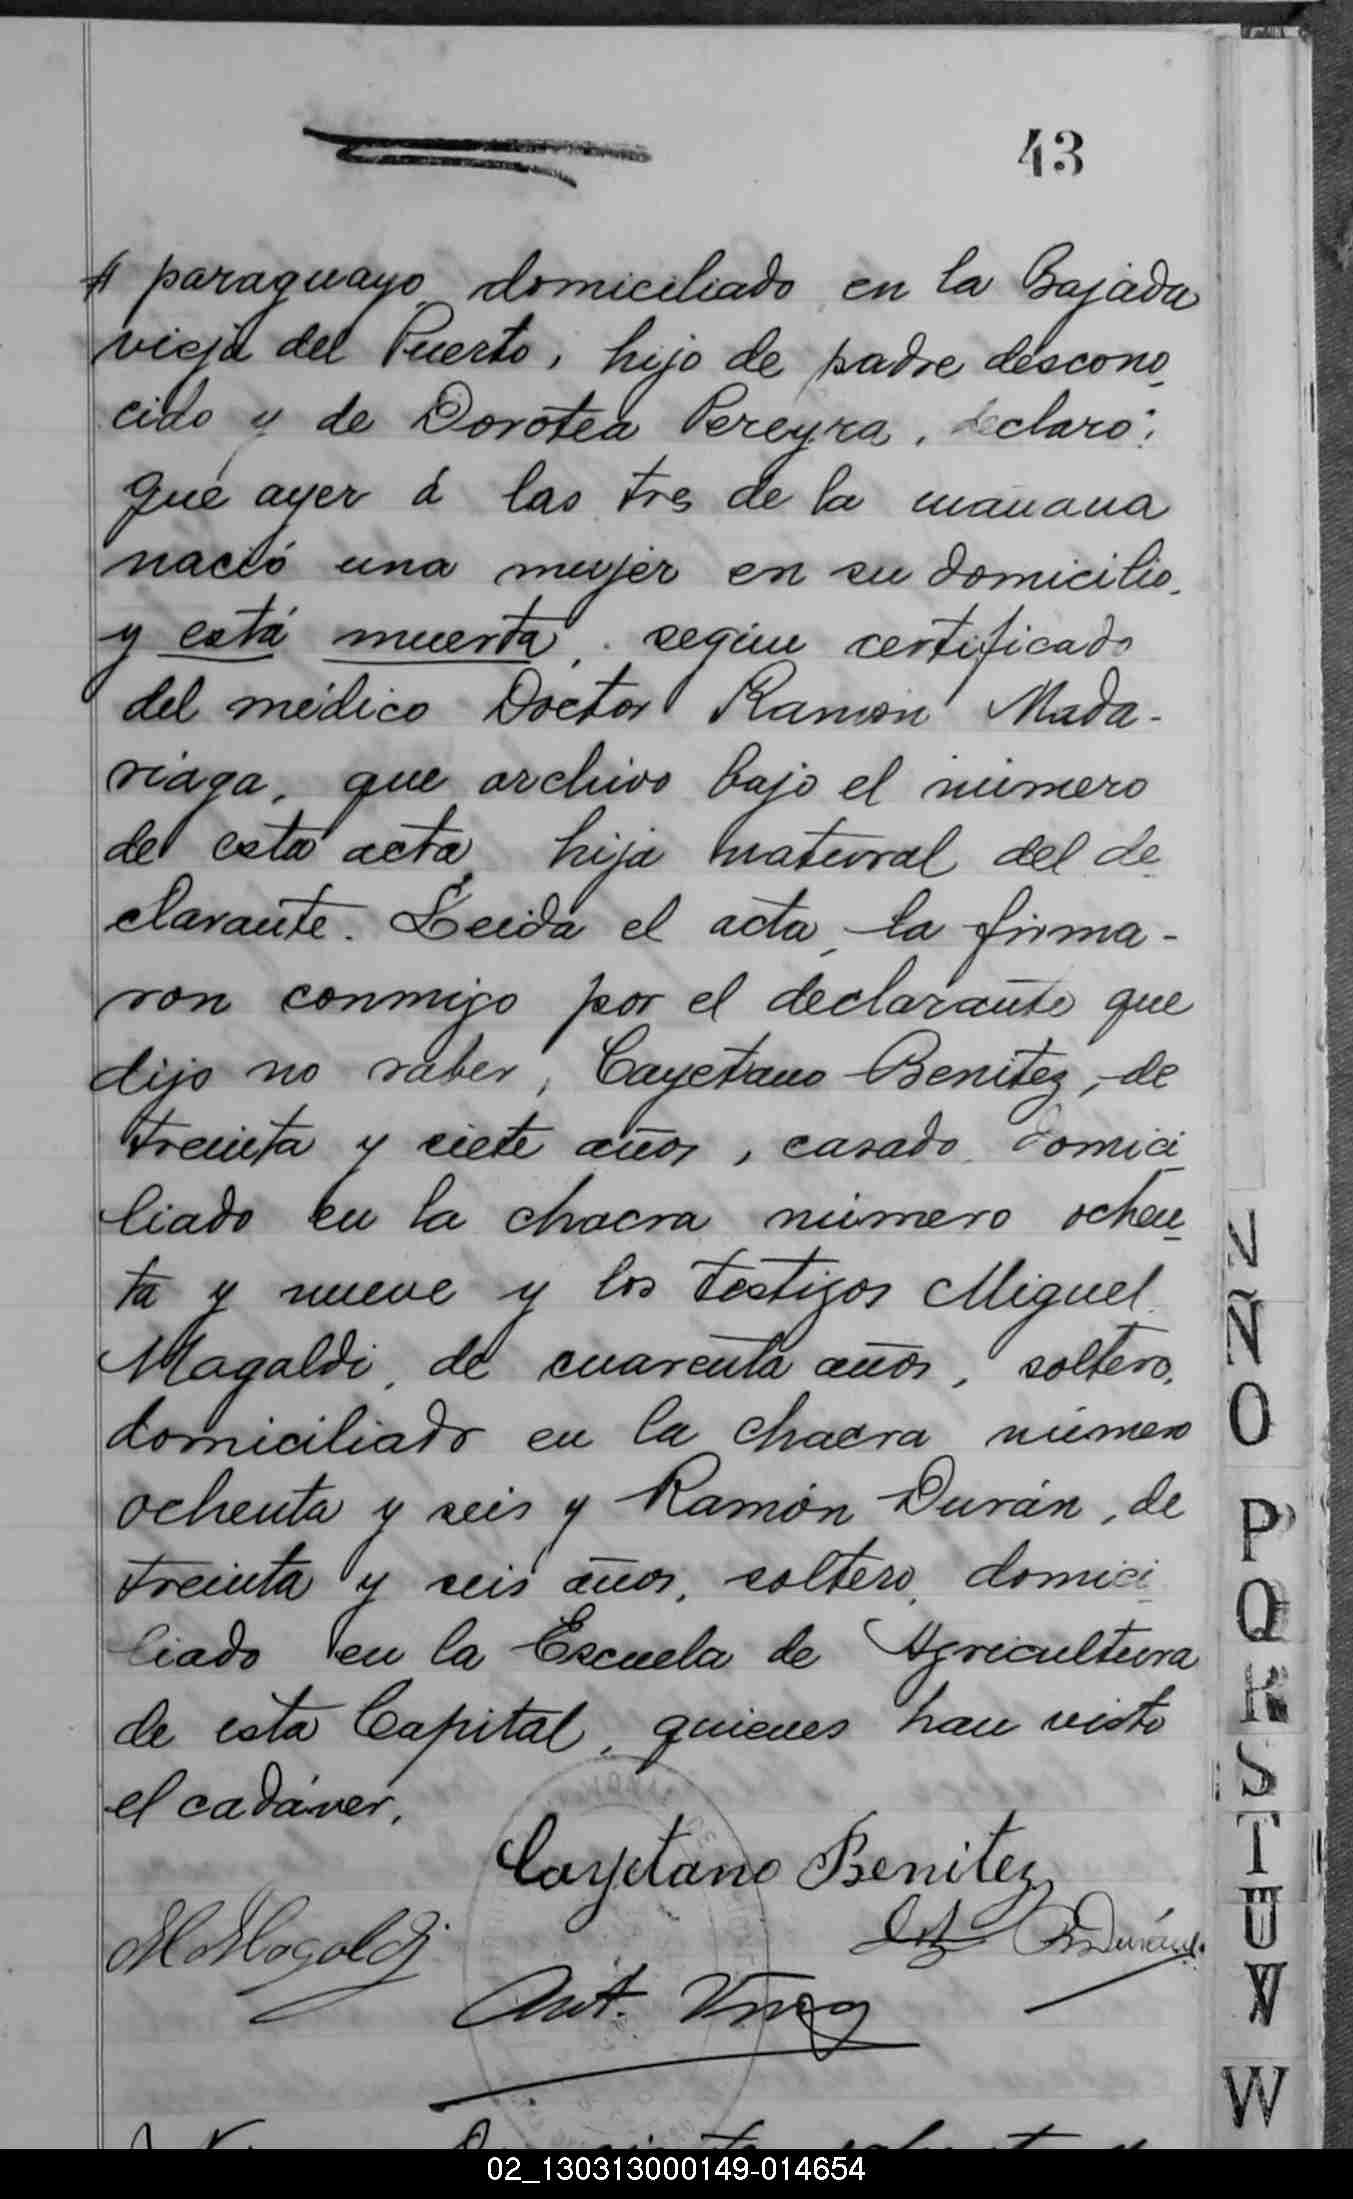 43
paraguayo, domiciliado en la Bajada
vieja del Puerto, hijo de padre descono-
cido y de Dorotea Pereyra, declaró:
que ayer á las tres de la mañana
nació una mujer en su domicilio,
y está muerta, segun certificado
del médico Doctor Ramón Mada-
riaga, que archivo bajo el número
de esta acta, hija natural del de-
clarante. Leida el acta, la firma-
ron conmigo por el declarante que
dijo no saber, Cayetano Benitez, de
treinta y siete años, casado, domici-
liado en la chacra número ochen-
ta y nueve y los testigos Miguel
Magaldi, de cuarenta años, soltero,
domiciliado en la chacra número
ochenta y seis y Ramón Durán, de
treinta y seis años, soltero, domici-
liado en la Escuela de Agricultura
de esta Capital, quienes han visto
el cadáver.
Cayetano Benitez
M Magaldi
R Durán
Ant.
N
Ñ
O
P
Q
R
S
T
U
V
W
02_130313000149-014654